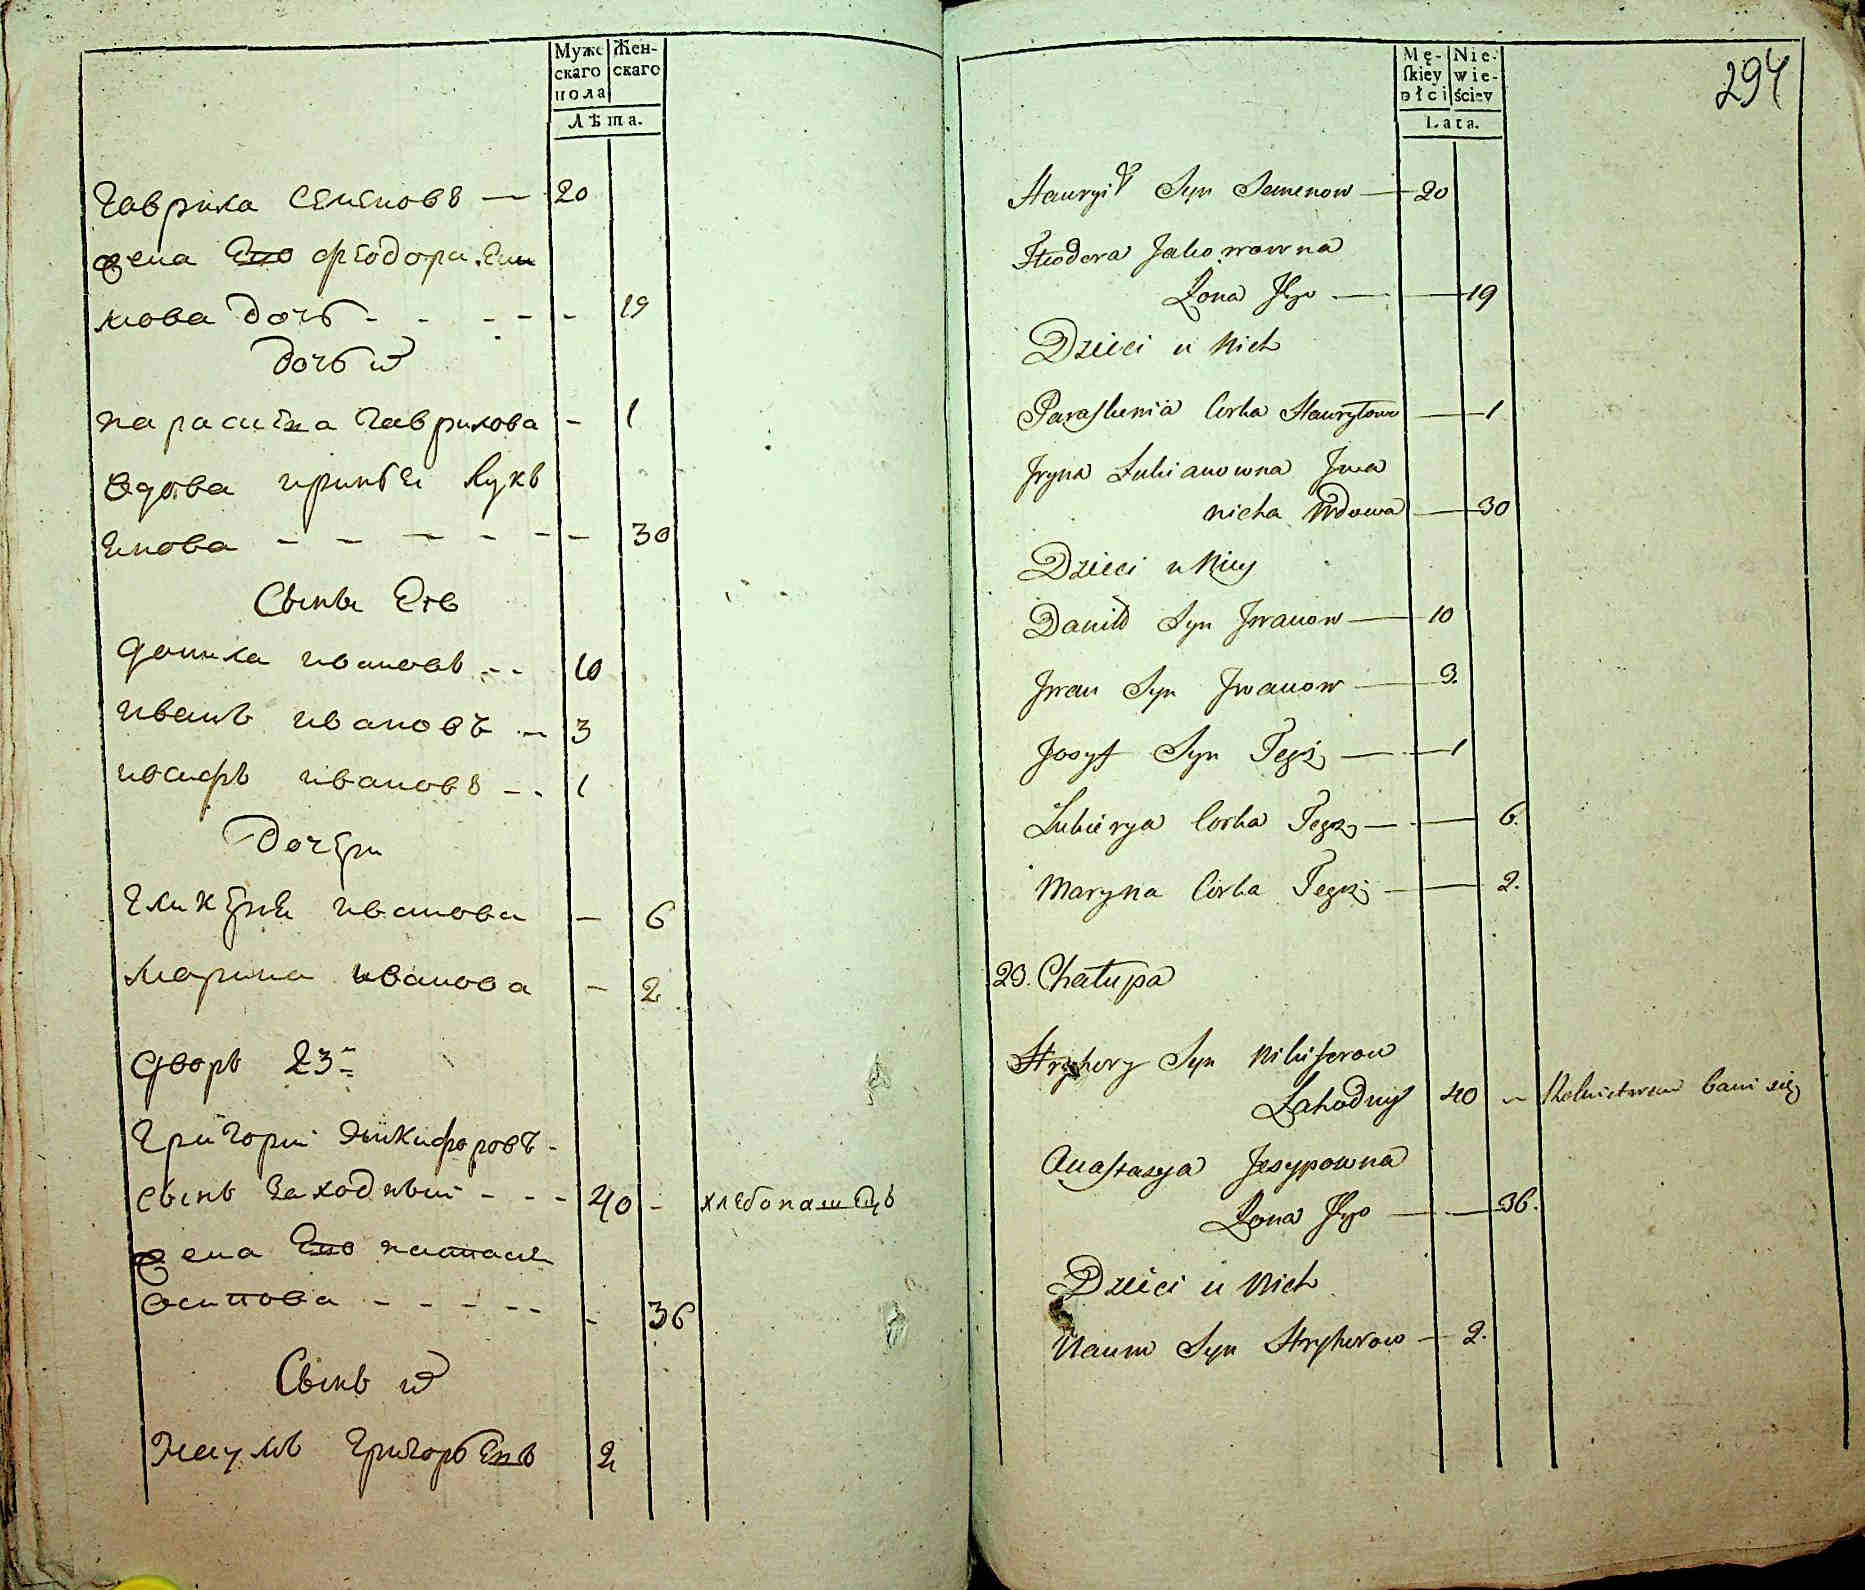 Муже
скаго
пола
Жен-
скаго
Лѣта.
Гаврила Семеновъ — 20
жена Его Феодора Еки
мова дочь - - - - - 19
дочь их
параскева Гаврилова - 1
вдова ирина Лукь
янова - - - - - - 30
Сыны Ея
данила ивановъ - - 10
иванъ ивановъ - 3
иосифъ ивановъ - - 1
дочери
гликерия иванова - 6
марина иванова - 2
дворъ 23-
григорий никифоровъ -
сынъ заходный - - - 40 - хлебопашецъ
жена Его настася
осипова - - - - - - 36
Сынъ их
Наумъ григорьевъ 2
Mę-
skiey
płci
Nie-
wie-
ściey
Lata.
294
Hawryił Syn Semenow — 20
Fiodora Jakimowna
Żona Jego — — 19
Dzieci u Nich
Paraskewia Corka Hawryłowa — 1
Iryna Lukianowna Iwa
nicha Wdowa — 30
Dzieci u Niey
Daniło Syn Iwanow — 10
Iwan Syn Iwanow — 3.
Josyf Syn Tegoż — 1
Lukierya Corka Tegoż — 6.
Maryna Corka Tegoż — 2.
23. Chałupa
Hryhory Syn Nikiforow
Zahodny 40 — Rolnictwem bawi się
Anastazya Josypowna
Żona Jego — 36.
Dzieci u Nich
Naum Syn Hryhorow — 2.